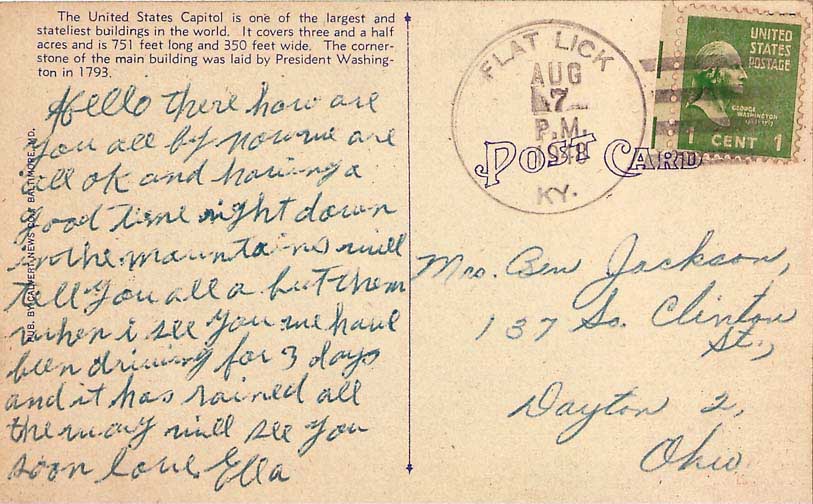 The United States Capitol is one of the largest and
stateliest buildings in the world. It covers three and a half
acres and is 751 feet long and 350 feet wide. The corner-
stone of the main building was laid by President Washing-
ton in 1793.
Hello there how are
you all by now we are
all ok and having a
good time right down
in the mountains will
tell you all a but them
when i see you we have
been driving for 3 days
and it has rained all
the way will see you
soon love Ella
PUB. BY CALVERT NEWS CO., BALTIMORE, MD.
FLAT LICK
AUG
7
P.M.
1948
KY.
POST CARD
UNITED
STATES
POSTAGE
GEORGE
WASHINGTON
1 CENT 1
Mrs. Ben Jackson,
137 So. Clinton
St.,
Dayton 2,
Ohio